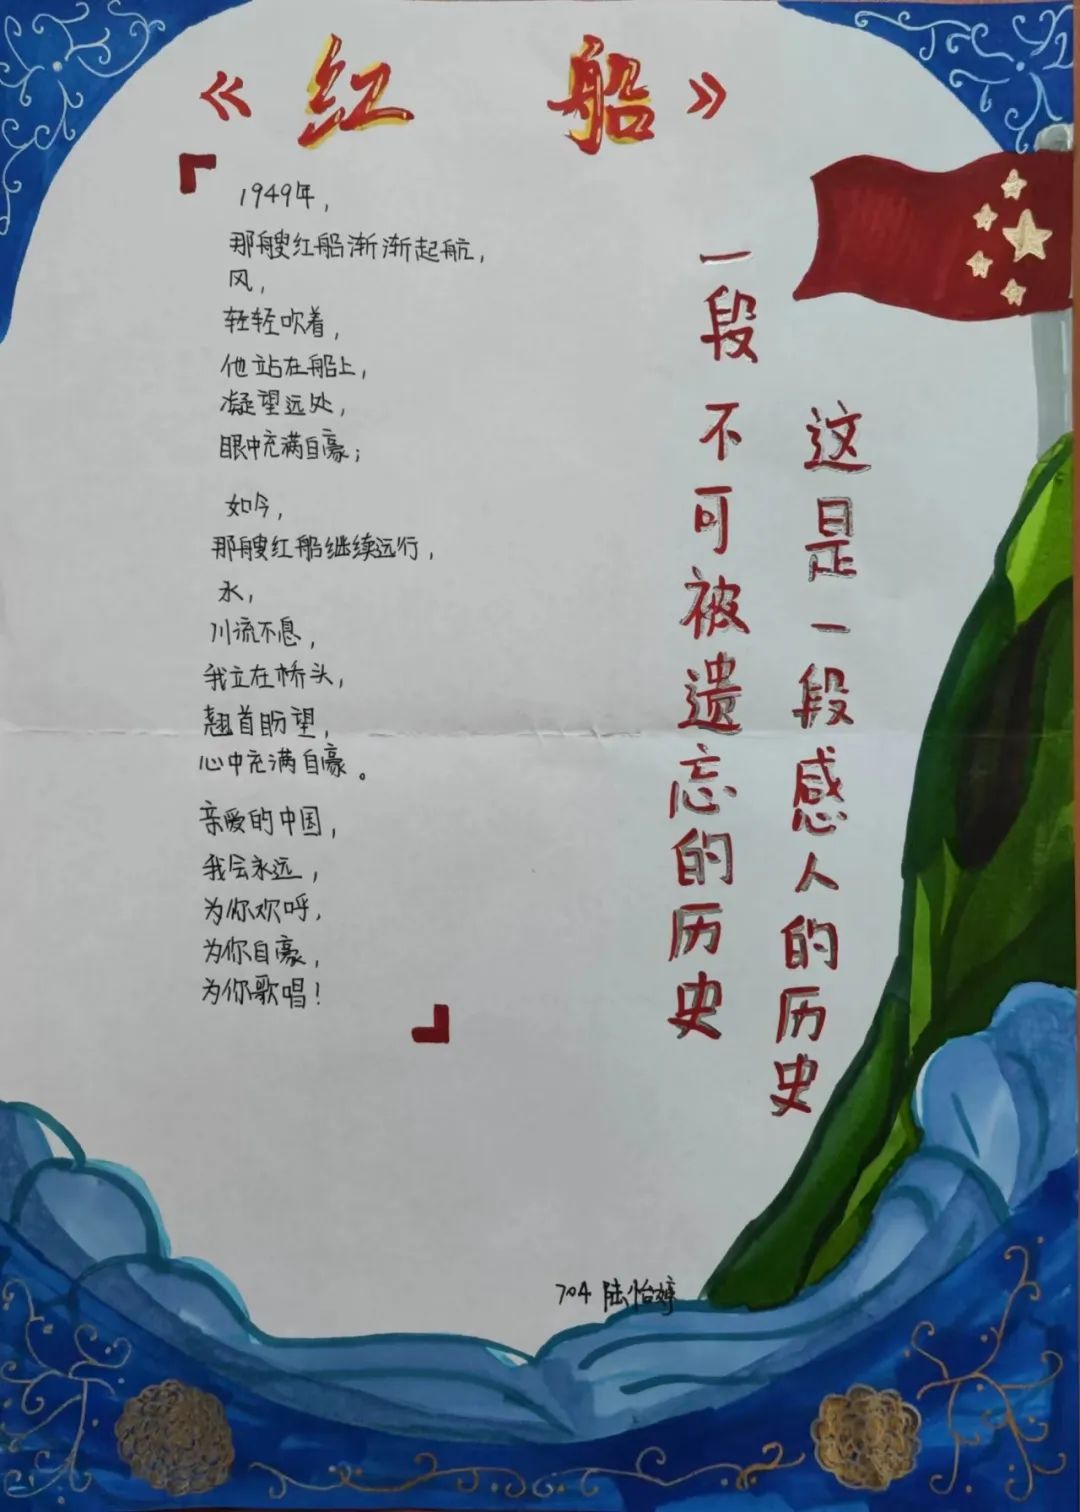 《 红 船 》
1949年，
那艘红船渐渐起航，
风，
轻轻吹着，
他站在船上，
凝望远处，
眼中充满自豪；
如今，
那艘红船继续远行，
水，
川流不息，
我立在桥头，
翘首盼望，
心中充满自豪。
亲爱的中国，
我会永远，
为你欢呼，
为你自豪，
为你歌唱！
这是一段感人的历史
一段不可被遗忘的历史
704 陆怡婷